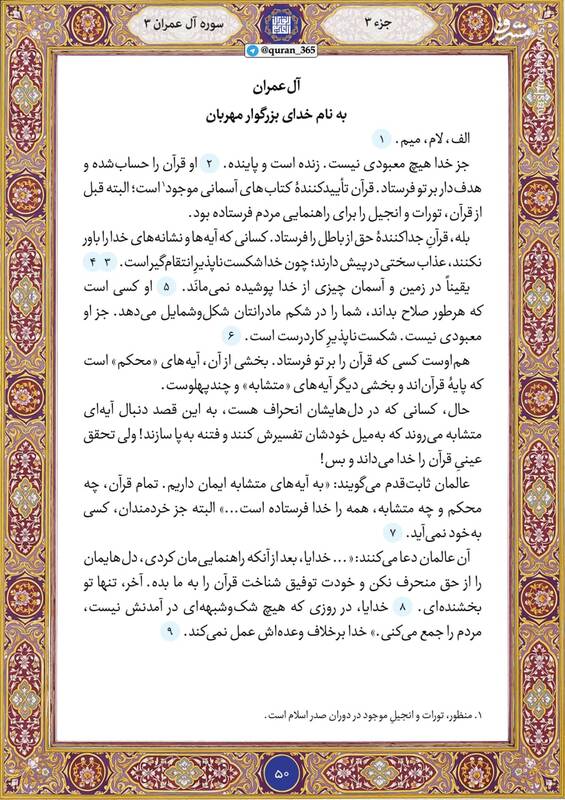 جزء ۳
سوره آل عمران ۳
مشرق
mashreghnews.ir
@quran_365
آل‌عمران
به نام خدای بزرگوار مهربان
الف، لام، میم. ۱
جز خدا هیچ معبودی نیست. زنده است و پاینده. ۲ او قرآن را حساب‌شده و
هدف‌دار بر تو فرستاد. قرآن تأییدکنندهٔ کتاب‌های آسمانی موجود۱ است؛ البته قبل
از قرآن، تورات و انجیل را برای راهنمایی مردم فرستاده بود.
بله، قرآنِ جداکنندهٔ حق از باطل را فرستاد. کسانی که آیه‌ها و نشانه‌های خدا را باور
نکنند، عذاب سختی در پیش دارند؛ چون خدا شکست‌ناپذیرِ انتقام‌گیر است. ۳ ۴
یقیناً در زمین و آسمان چیزی از خدا پوشیده نمی‌مانَد. ۵ او کسی است
که هرطور صلاح بداند، شما را در شکم مادرانتان شکل‌وشمایل می‌دهد. جز او
معبودی نیست. شکست‌ناپذیرِ کاردرست است. ۶
هم‌اوست کسی که قرآن را بر تو فرستاد. بخشی از آن، آیه‌های «محکم» است
که پایهٔ قرآن‌اند و بخشی دیگر آیه‌های «متشابه» و چندپهلوست.
حال، کسانی که در دل‌هایشان انحراف هست، به این قصد دنبال آیه‌ای
متشابه می‌روند که به‌میل خودشان تفسیرش کنند و فتنه به‌پا سازند! ولی تحقق
عینیِ قرآن را خدا می‌داند و بس!
عالمان ثابت‌قدم می‌گویند: «به آیه‌های متشابه ایمان داریم. تمام قرآن، چه
محکم و چه متشابه، همه را خدا فرستاده است...» البته جز خردمندان، کسی
به‌خود نمی‌آید. ۷
آن عالمان دعا می‌کنند: «... خدایا، بعد از آنکه راهنمایی‌مان کردی، دل‌هایمان
را از حق منحرف نکن و خودت توفیق شناخت قرآن را به ما بده. آخر، تنها تو
بخشنده‌ای. ۸ خدایا، در روزی که هیچ شک‌وشبهه‌ای در آمدنش نیست،
مردم را جمع می‌کنی.» خدا برخلاف وعده‌اش عمل نمی‌کند. ۹
۱. منظور، تورات و انجیلِ موجود در دوران صدر اسلام است.
۵۰